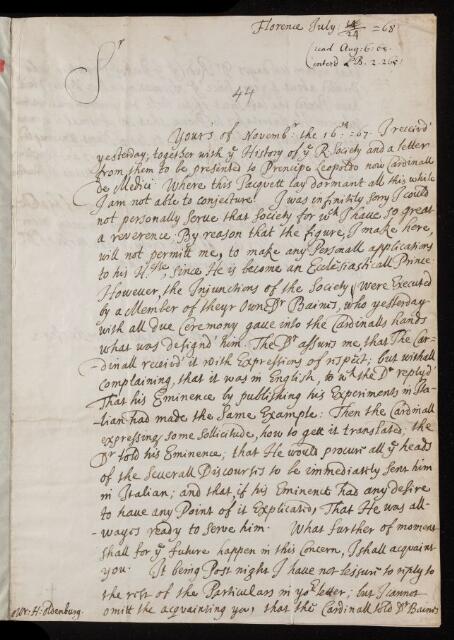 Florence July: 14/24 =68
(read Aug: 6: 68.
(enterd L.B. 2. 262)
Sr
44
Yours of Novembr. the 16th. =67. I receivd
yesterday, together with ye History of ye R. Society and a letter
from them to be presented to Prencipe Leopoldo now Cardinall
de Medici. Where this Pacquett lay dormant all this while
I am not able to conjecture. I was infinitly sorry I could
not personally serue that Society for wch I haue so great
a reverence. By reason that the figure, I make here,
will not permitt me, to make any Personall applications
to his H.nesse, since He is become an Ecclesiasticall Prince.
However the Injunctions of the Society were Executed
by a Member of theyr Owne Dr Baines, who yesterday
with all due Ceremony gaue into the Cardinalls hands
what was design'd him. The Dr assurs me, that The Car-
-dinall receivd it with Expressions of respect; but withall
complaining, that it was in English, to wch the Dr replyd
That his Eminence by publishing his Experiments in Ita-
lian had made the Same Example. Then the Cardinall
expressing some Sollicitude, how to gett it translated, the
Dr told his Eminence, that He would procure all ye heads
of the Severall Discourses to be immediately sent him
in Italian; and that if his Eminence had any desire
to have any Point of it Explicated, That He was all-
-wayes ready to serve him. What further of moment
shall for ye future happen in this Concern, I shall acquaint
you. It being Post night I have not leisure to reply to
the rest of the Particulars in yor letter; but I cannot
omitt the acquainting you, that the Cardinall told Dr Baines
Mr: H: oldenburg.